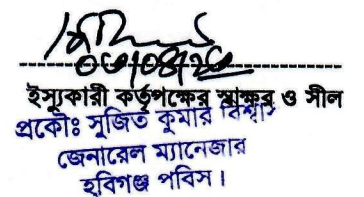 ইস্যুকারী কর্তৃপক্ষের স্বাক্ষর ও সীল
প্রকৌঃ সুজিত কুমার বিশ্বাস
জেনারেল ম্যানেজার
হবিগঞ্জ পবিস।